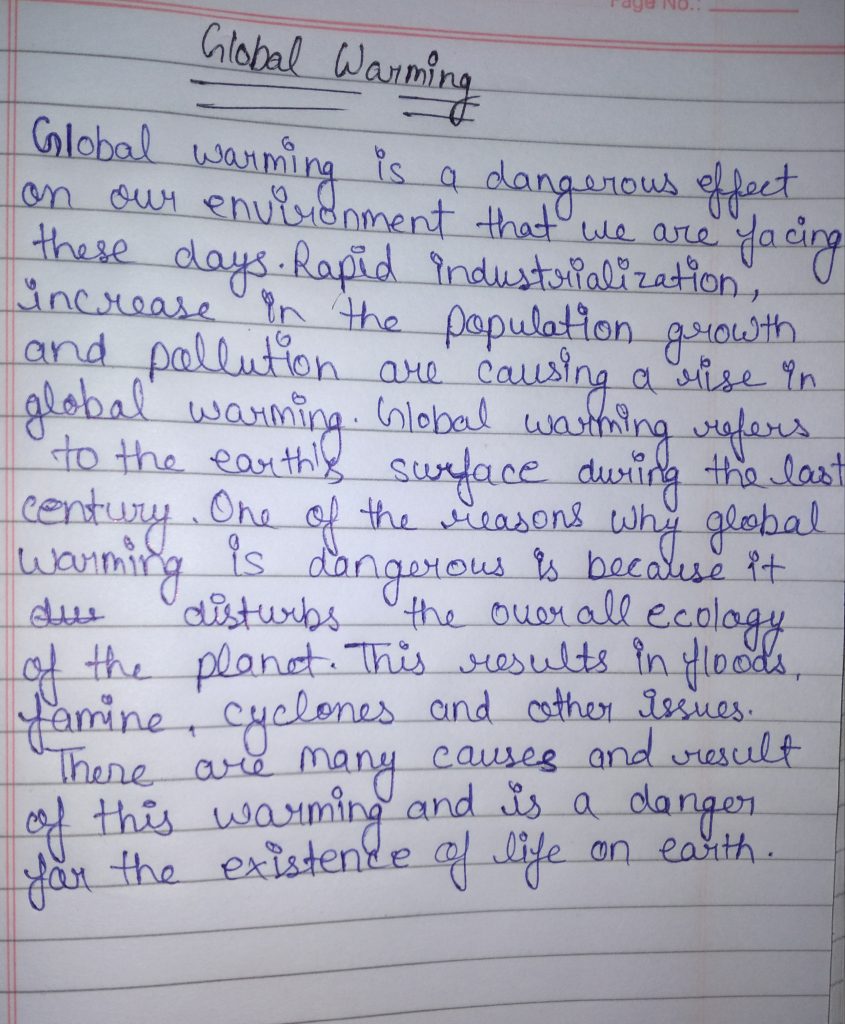 Page No.:
Global Warming
Global warming is a dangerous effect
on our environment that we are facing
these days. Rapid industrialization,
increase in the population growth
and pollution are causing a rise in
global warming. Global warming refers
to the earth's surface during the last
century. One of the reasons why global
warming is dangerous is because it
disturbs the overall ecology
of the planet. This results in floods,
famine, cyclones and other issues.
There are many causes and result
of this warming and is a danger
for the existence of life on earth.